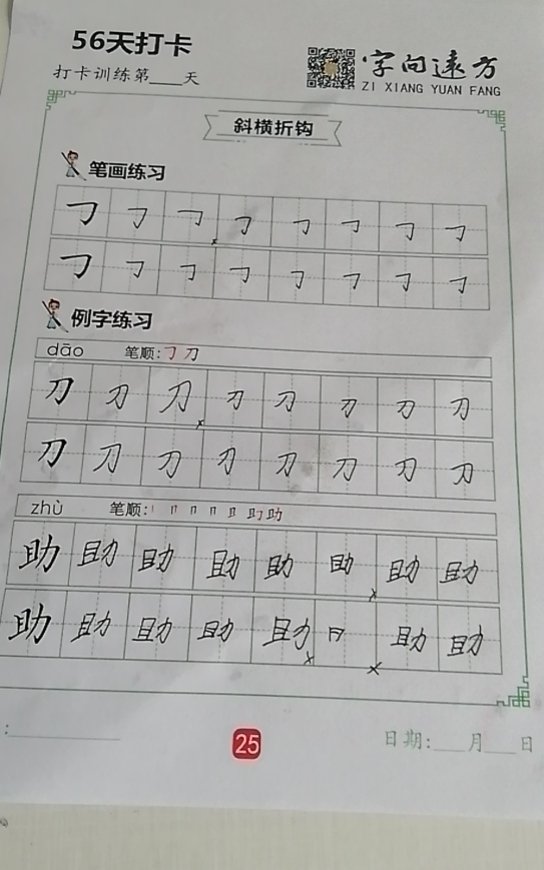 56天打卡
打卡训练第___天
字向遠方
ZI XIANG YUAN FANG
斜横折钩
笔画练习
㇆ ㇆ ㇆ ㇆ ㇆ ㇆ ㇆ ㇆
㇆ ㇆ ㇆ ㇆ ㇆ ㇆ ㇆ ㇆
例字练习
dāo 笔顺: ㇆ 刀
刀 刀 刀 刀 刀 刀 刀 刀
刀 刀 刀 刀 刀 刀 刀 刀
zhù 笔顺: 丨 冂 冂 月 且 助 助
助 助 助 助 助 助 助 助
助 助 助 助 助 助 助
:___________
25
日期:___月___日